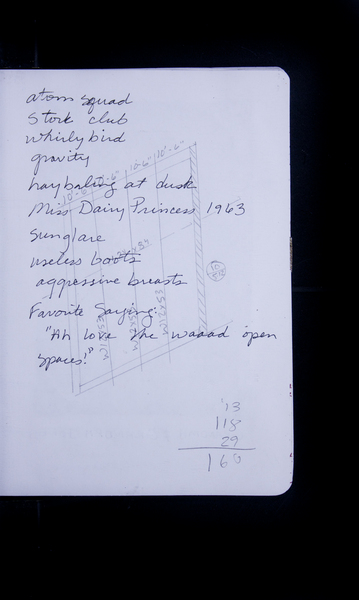 atom squad
Stork club
whirly bird
gravity
haybaling at dusk
Miss Dairy Princess 1963
sunglare
useless boots
aggressive breasts
Favorite Saying:
"Ah love the waaad open
spaces!"
10'-6" 10'-6"
13
118
29
160